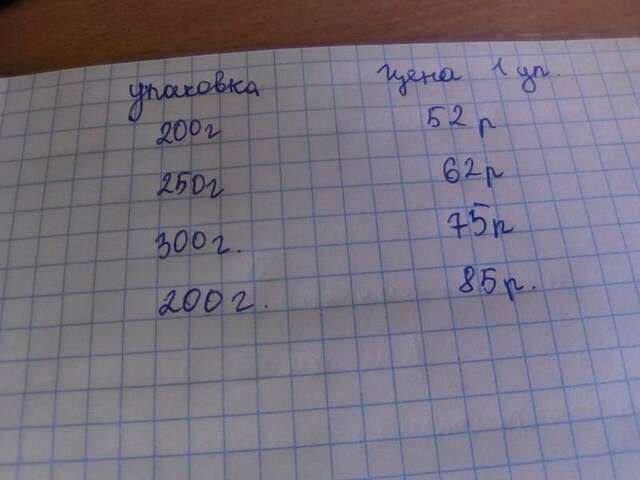 упаковка цена 1 уп.
200г 52 р
250г 62р
300г. 75р
200г. 85р.